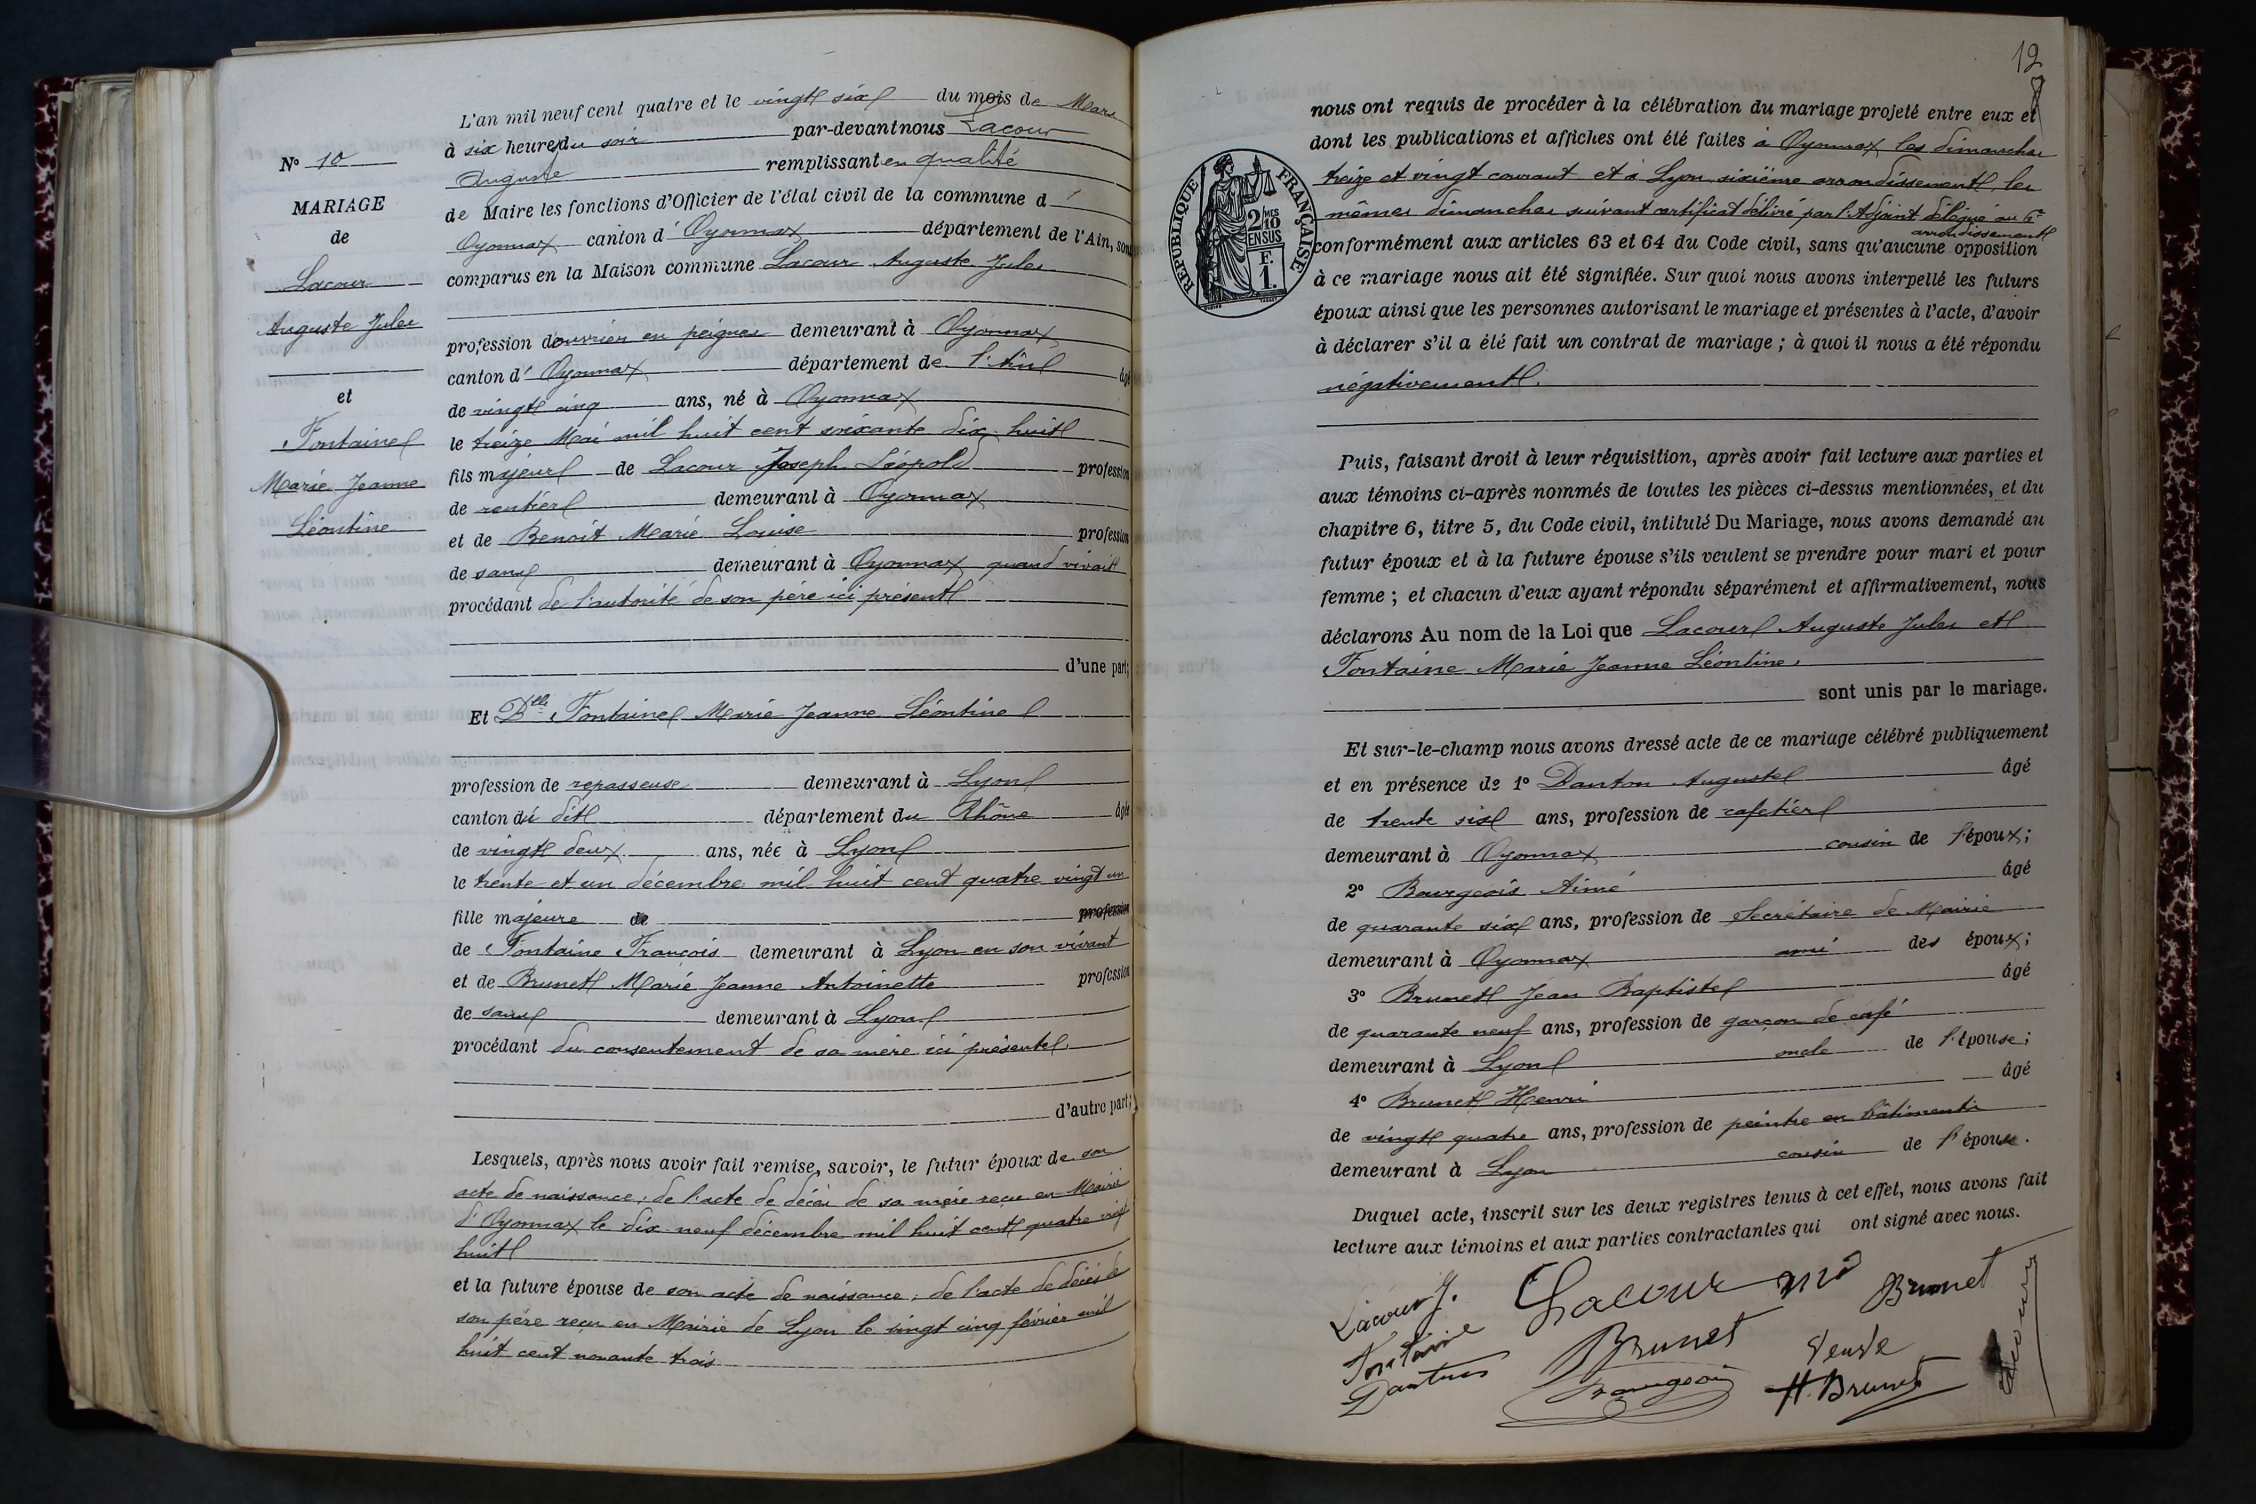 L'an mil neuf cent quatre et le vingt six du mois de Mars
à six heures du soir par-devant nous Lacour
Auguste remplissant en qualité
de Maire les fonctions d'Officier de l'état civil de la commune d'
Oyonnax canton d' Oyonnax département de l'Ain, sont
comparus en la Maison commune Lacour Auguste Jules
profession d'ouvrier en peignes demeurant à Oyonnax
canton d' Oyonnax département de l'Ain âgé
de vingt cinq ans, né à Oyonnax
le treize Mai mil huit cent soixante dix huit
fils majeur de Lacour Joseph Léopold profession
de rentier demeurant à Oyonnax
et de Benoit Marie Louise profession
de sans demeurant à Oyonnax quand vivait
procédant de l'autorité de son père ici présent
d'une part;
Et Dlle Fontaine Marie Jeanne Léontine
profession de repasseuse demeurant à Lyon
canton du dit département du Rhône âgée
de vingt deux ans, née à Lyon
le trente et un décembre mil huit cent quatre vingt un
fille majeure de profession
de Fontaine François demeurant à Lyon en son vivant
et de Brunet Marie Jeanne Antoinette profession
de sans demeurant à Lyon
procédant du consentement de sa mère ici présente
d'autre part;
Lesquels, après nous avoir fait remise, savoir, le futur époux de son
acte de naissance; de l'acte de décès de sa mère reçu en Mairie
d'Oyonnax le dix neuf décembre mil huit cent quatre vingt
huit
et la future épouse de son acte de naissance; de l'acte de décès de
son père reçu en Mairie de Lyon le vingt cinq février mil
huit cent nonante trois
N° 10
MARIAGE
de
Lacour
Auguste Jules
et
Fontaine
Marie Jeanne
Léontine
12
nous ont requis de procéder à la célébration du mariage projeté entre eux et
dont les publications et affiches ont été faites à Oyonnax les dimanches
treize et vingt courant et à Lyon sixième arrondissement les
mêmes dimanches suivant certificat délivré par l'Adjoint délégué au 6e
arrondissement
conformément aux articles 63 et 64 du Code civil, sans qu'aucune opposition
à ce mariage nous ait été signifiée. Sur quoi nous avons interpellé les futurs
époux ainsi que les personnes autorisant le mariage et présentes à l'acte, d'avoir
à déclarer s'il a été fait un contrat de mariage; à quoi il nous a été répondu
négativement.
RÉPUBLIQUE FRANÇAISE
2/10 MES
EN SUS
F.
1.
Puis, faisant droit à leur réquisition, après avoir fait lecture aux parties et
aux témoins ci-après nommés de toutes les pièces ci-dessus mentionnées, et du
chapitre 6, titre 5, du Code civil, intitulé Du Mariage, nous avons demandé au
futur époux et à la future épouse s'ils veulent se prendre pour mari et pour
femme; et chacun d'eux ayant répondu séparément et affirmativement, nous
déclarons Au nom de la Loi que Lacour Auguste Jules et
Fontaine Marie Jeanne Léontine,
sont unis par le mariage.
Et sur-le-champ nous avons dressé acte de ce mariage célébré publiquement
et en présence de 1° Danton Auguste âgé
de trente six ans, profession de cafetier
demeurant à Oyonnax cousin de l'époux;
2° Bourgeois Aimé âgé
de quarante six ans, profession de Secrétaire de Mairie
demeurant à Oyonnax ami des époux;
3° Brunet Jean Baptiste âgé
de quarante neuf ans, profession de garçon de café
demeurant à Lyon oncle de l'épouse;
4° Brunet Henri âgé
de vingt quatre ans, profession de peintre en bâtiments
demeurant à Lyon cousin de l'épouse.
Duquel acte, inscrit sur les deux registres tenus à cet effet, nous avons fait
lecture aux témoins et aux parties contractantes qui ont signé avec nous.
Lacour J. Lacour Brunet
Fontaine Brunet
Bourgeois H. Brunet
Lacour